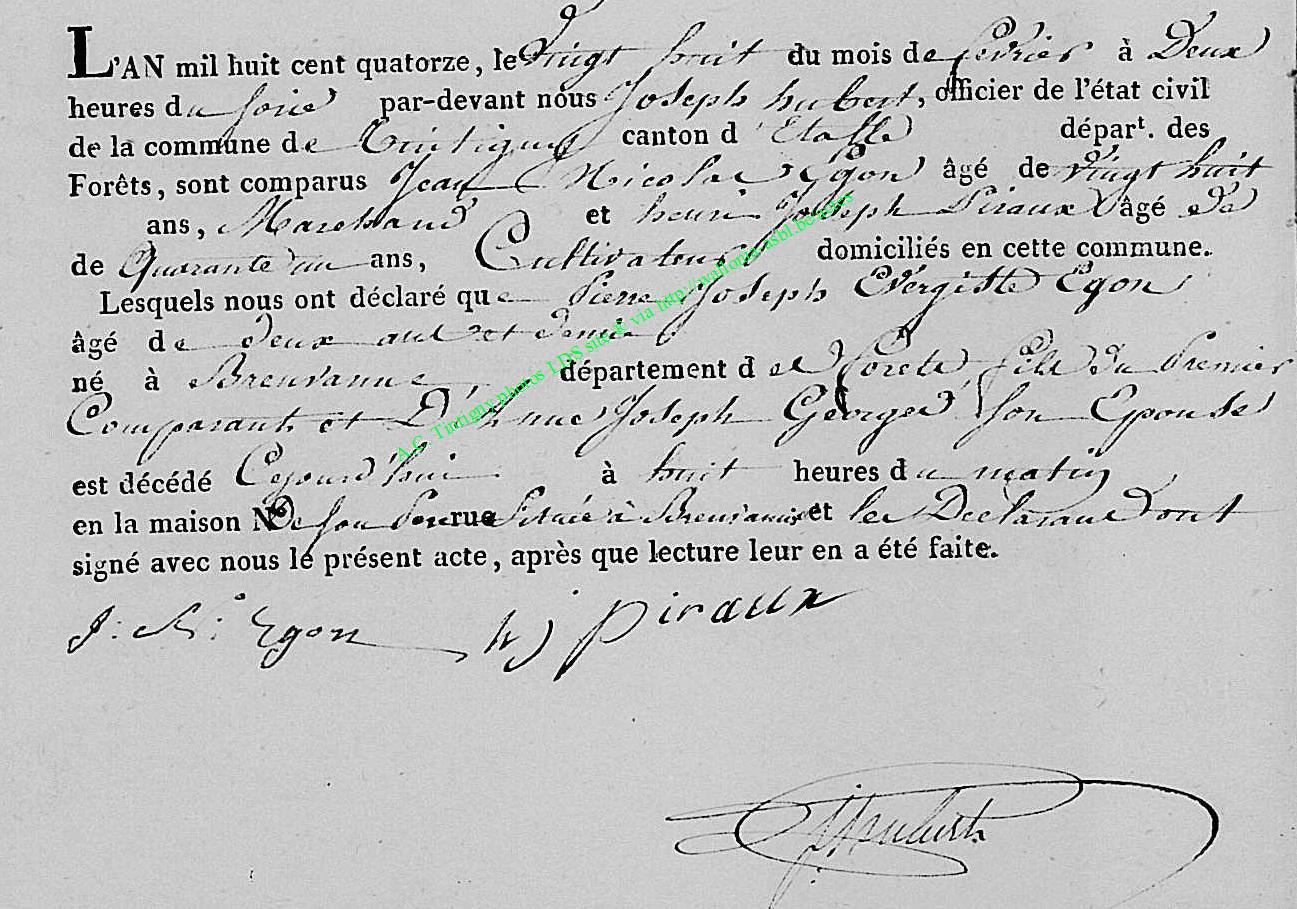 L'AN mil huit cent quatorze, le Vingt huit du mois de fevrier à Deux
heures du soire par-devant nous Joseph hubert, officier de l'état civil
de la commune de Tintigny canton d'Etalle départ. des
Forêts, sont comparus Jean Nicolas Egon âgé de vingt huit
ans, Marchand et henri Joseph Piraux âgé de
de Quarante un ans, Cultivateur domiciliés en cette commune.
Lesquels nous ont déclaré que Pierre Joseph Evergiste Egon
âgé de deux ans et demi
né à Breuvanne, département de forets fils du Premier
Comparant et D'Anne Joseph Georges son Epouse
est décédé Cejourd'hui à huit heures du matin
en la maison No de son Pere rue Située à Breuvanne et les Declarans ont
signé avec nous le présent acte, après que lecture leur en a été faite.
J: N: Egon h j piraux
J Hubert
A.C. Tintigny photos LDS site & via http://wallonia-asbl.be